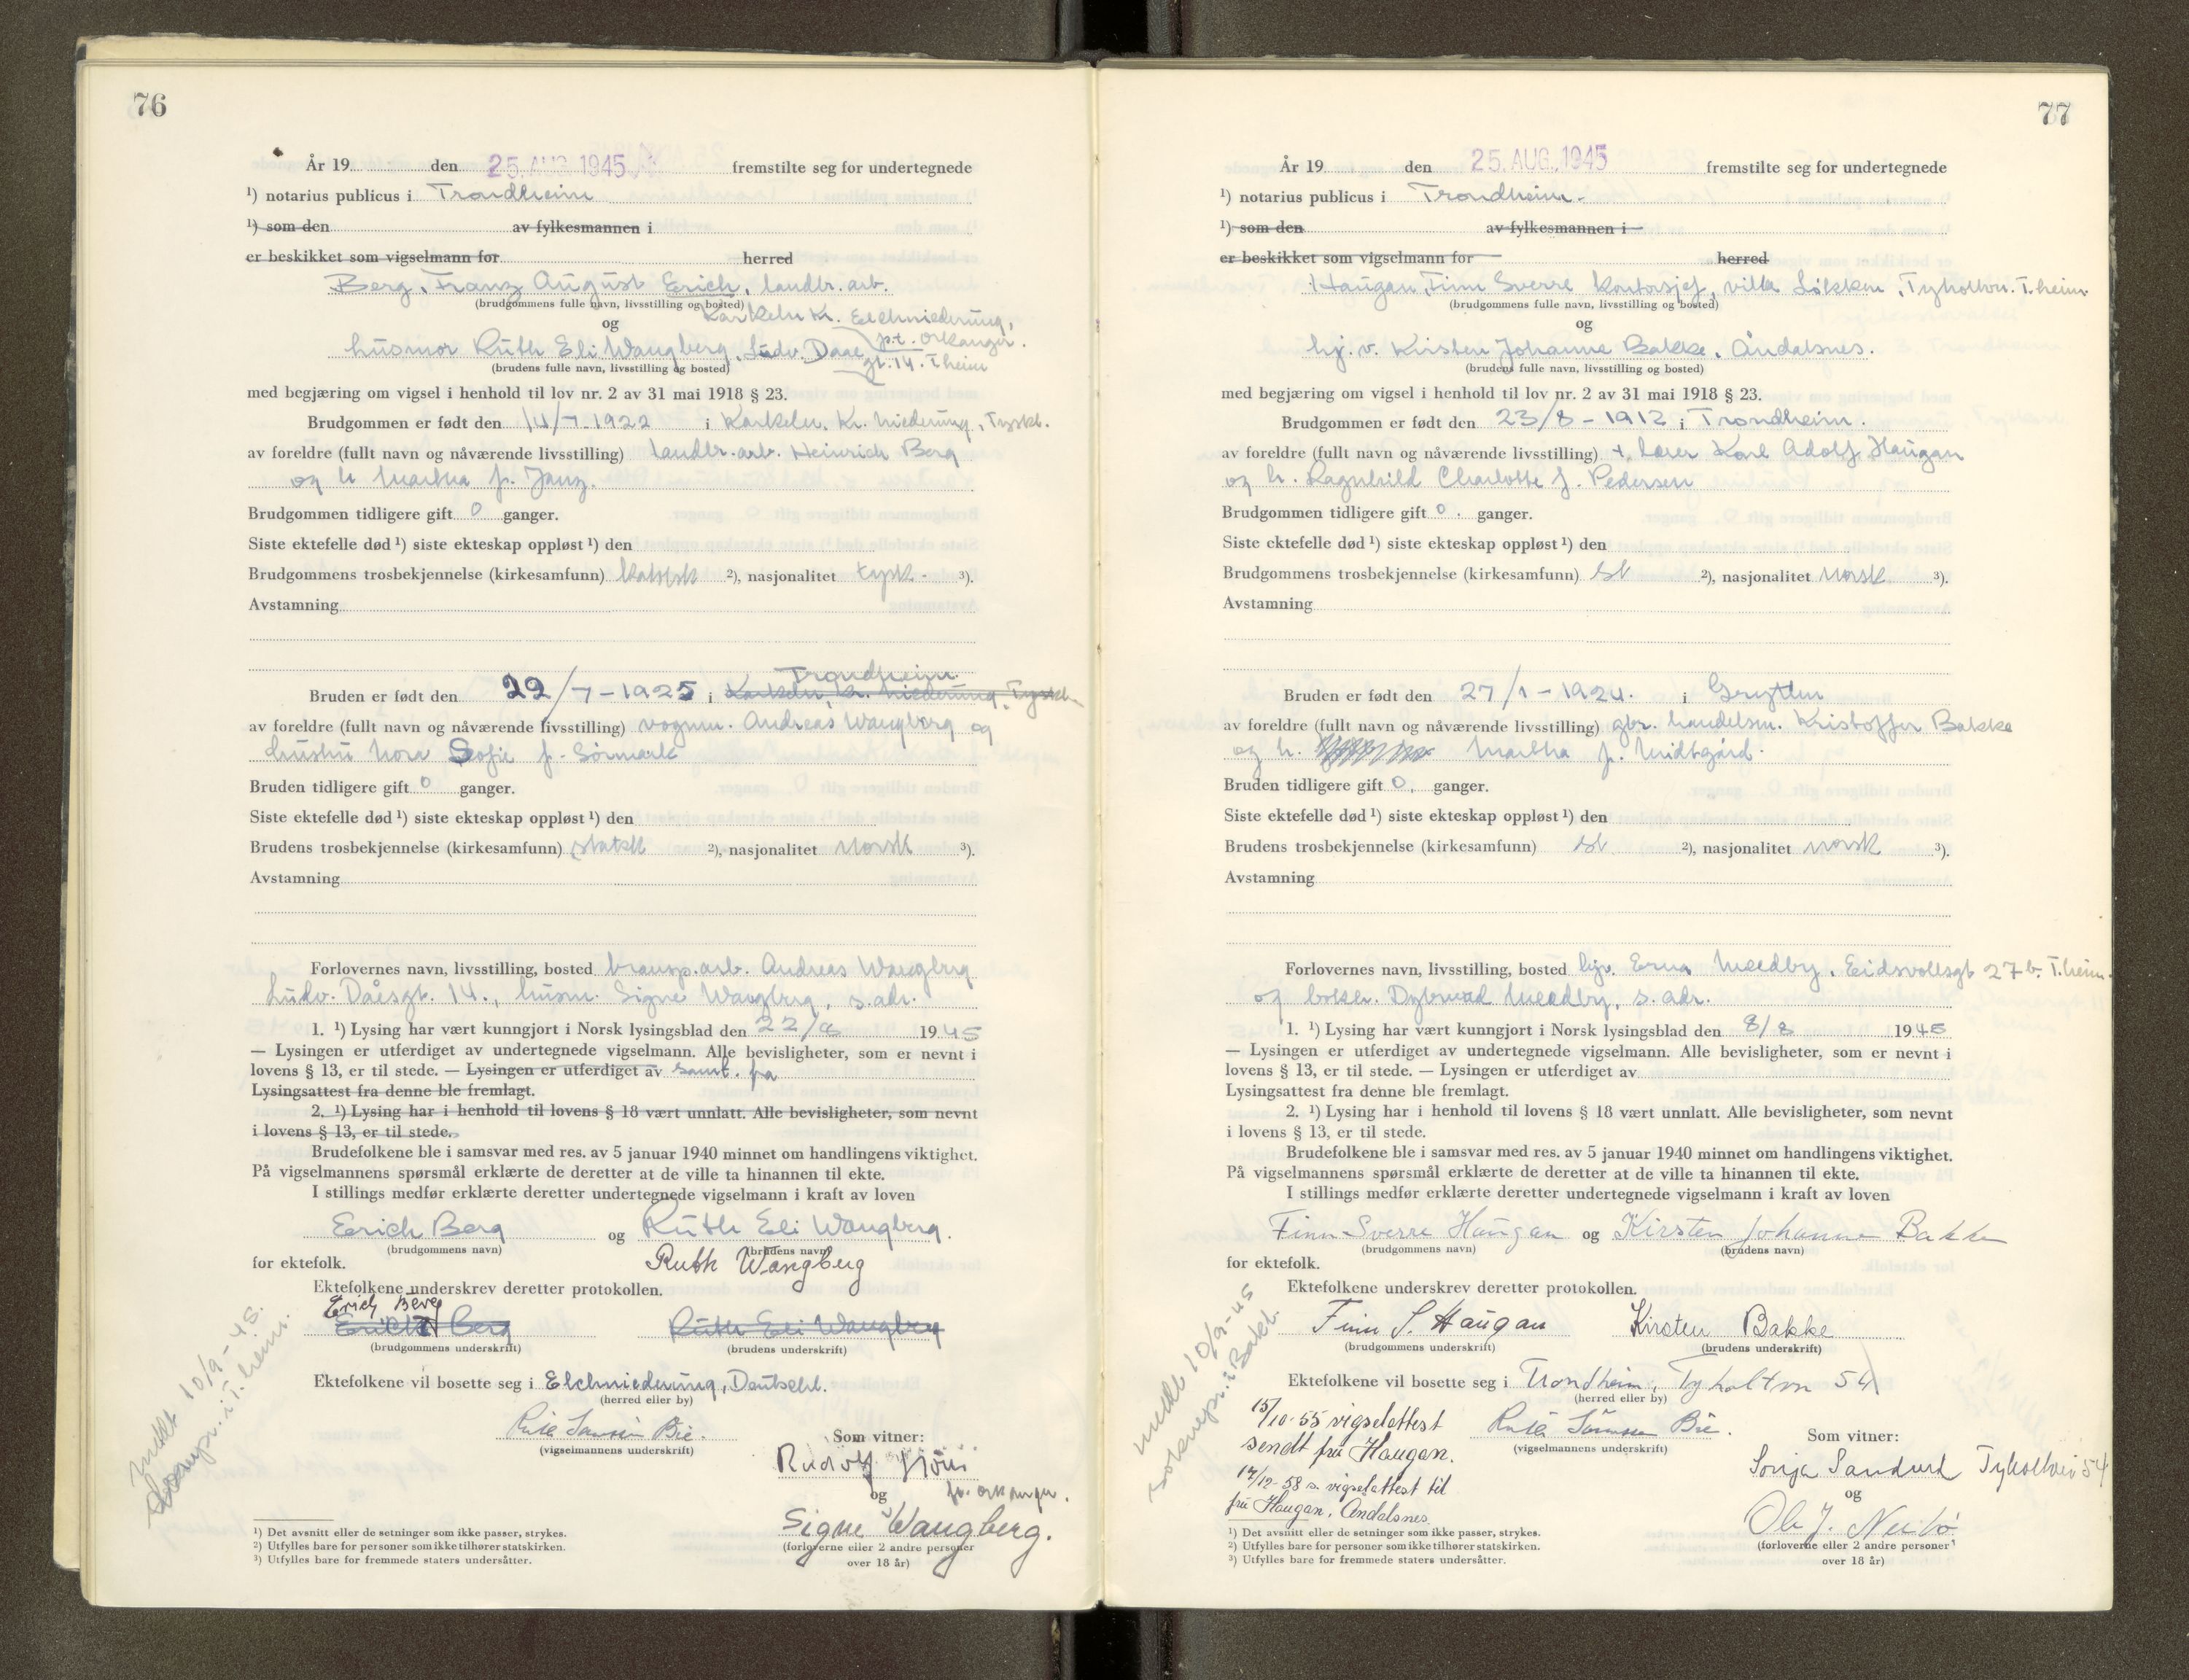 76
År 19 den 25. AUG. 1945 fremstilte seg for undertegnede
¹) notarius publicus i Trondheim
¹) som den av fylkesmannen i
er beskikket som vigselmann for herred
Berg, Franz August Erich, landbr. arb.
(brudgommens fulle navn, livsstilling og bosted)
Karkeln Kr. Elchniederung,
og p.t. Orkanger.
husmor Ruth Eli Wangberg, Ludv. Daae gt. 14. Theim
(brudens fulle navn, livsstilling og bosted)
med begjæring om vigsel i henhold til lov nr. 2 av 31 mai 1918 § 23.
Brudgommen er født den 14/7-1922 i Karkeln, Kr. Niederung, Tyskl.
av foreldre (fullt navn og nåværende livsstilling) landbr. arb. Heinrich Berg
og h Martha f. Janz.
Brudgommen tidligere gift 0 ganger.
Siste ektefelle død ¹) siste ekteskap oppløst ¹) den
Brudgommens trosbekjennelse (kirkesamfunn) ²), nasjonalitet tysk. ³).
Avstamning
Trondheim
Bruden er født den 22/7-1925 i Karkeln, Kr. Niederung, Tyskl.
av foreldre (fullt navn og nåværende livsstilling) vognm. Andreas Wangberg og
hustru Nora Sofie f. Sørmark
Bruden tidligere gift 0 ganger.
Siste ektefelle død ¹) siste ekteskap oppløst ¹) den
Brudens trosbekjennelse (kirkesamfunn) statsk ²), nasjonalitet norsk ³).
Avstamning
Forlovernes navn, livsstilling, bosted transp.arb. Andreas Wangberg
Ludv. Daaesgt. 14., husm. Signe Wangberg, s. adr.
1. ¹) Lysing har vært kunngjort i Norsk lysingsblad den 22/8 1945
— Lysingen er utferdiget av undertegnede vigselmann. Alle bevisligheter, som er nevnt i
lovens § 13, er til stede. — Lysingen er utferdiget av samt. fra
Lysingsattest fra denne ble fremlagt.
2. ¹) Lysing har i henhold til lovens § 18 vært unnlatt. Alle bevisligheter, som nevnt
i lovens § 13, er til stede.
Brudefolkene ble i samsvar med res. av 5 januar 1940 minnet om handlingens viktighet.
På vigselmannens spørsmål erklærte de deretter at de ville ta hinannen til ekte.
I stillings medfør erklærte deretter undertegnede vigselmann i kraft av loven
Erich Berg og Ruth Eli Wangberg.
(brudgommens navn) (brudens navn)
for ektefolk. Ruth Wangberg
Ektefolkene underskrev deretter protokollen.
Erich Berg
Erich Berg Ruth Eli Wangberg
(brudgommens underskrift) (brudens underskrift)
Ektefolkene vil bosette seg i Elchniederung, Deutschl.
(herred eller by)
(vigselmannens underskrift)
Som vitner:
Rudolf
og
Signe Wangberg.
(forloverne eller 2 andre personer
over 18 år)
meldt 10/9-45.
i T.heim.
¹) Det avsnitt eller de setninger som ikke passer, strykes.
²) Utfylles bare for personer som ikke tilhører statskirken.
³) Utfylles bare for fremmede staters undersåtter.
77
År 19 den 25. AUG. 1945 fremstilte seg for undertegnede
¹) notarius publicus i Trondheim.
¹) som den av fylkesmannen i
er beskikket som vigselmann for herred
Haugan, Finn Sverre kontorsjef, villa Løkken, Tyholtvn. T.heim
(brudgommens fulle navn, livsstilling og bosted)
og
hj. v. Kirsten Johanne Bakke, Åndalsnes.
(brudens fulle navn, livsstilling og bosted)
med begjæring om vigsel i henhold til lov nr. 2 av 31 mai 1918 § 23.
Brudgommen er født den 23/8-1912 i Trondheim.
av foreldre (fullt navn og nåværende livsstilling) +. lærer Karl Adolf Haugan
og h. Ragnhild Charlotte f. Pedersen
Brudgommen tidligere gift 0. ganger.
Siste ektefelle død ¹) siste ekteskap oppløst ¹) den
Brudgommens trosbekjennelse (kirkesamfunn) st ²), nasjonalitet norsk ³).
Avstamning
Bruden er født den 27/1-1924. i Grytten
av foreldre (fullt navn og nåværende livsstilling) gbr. handelsm. Kristoffer Bakke
og h. Martha f. Midtgård.
Bruden tidligere gift 0. ganger.
Siste ektefelle død ¹) siste ekteskap oppløst ¹) den
Brudens trosbekjennelse (kirkesamfunn) st ²), nasjonalitet norsk ³).
Avstamning
Forlovernes navn, livsstilling, bosted hjv. Erna Meedby, Eidsvollsgt 27 b. T.heim.
og Meedby, s. adr.
1. ¹) Lysing har vært kunngjort i Norsk lysingsblad den 8/8 1945
— Lysingen er utferdiget av undertegnede vigselmann. Alle bevisligheter, som er nevnt i
lovens § 13, er til stede. — Lysingen er utferdiget av
Lysingsattest fra denne ble fremlagt.
2. ¹) Lysing har i henhold til lovens § 18 vært unnlatt. Alle bevisligheter, som nevnt
i lovens § 13, er til stede.
Brudefolkene ble i samsvar med res. av 5 januar 1940 minnet om handlingens viktighet.
På vigselmannens spørsmål erklærte de deretter at de ville ta hinannen til ekte.
I stillings medfør erklærte deretter undertegnede vigselmann i kraft av loven
Finn Sverre Haugan og Kirsten Johanne Bakke
(brudgommens navn) (brudens navn)
for ektefolk.
Ektefolkene underskrev deretter protokollen.
Finn S. Haugan Kirsten Bakke
(brudgommens underskrift) (brudens underskrift)
Ektefolkene vil bosette seg i Trondheim, Tyholtvn 54
(herred eller by)
15/10-55 vigselattest
sendt fru Haugan.
17/12-58 s. vigselattest til
fru Haugan, Åndalsnes.
(vigselmannens underskrift)
Som vitner:
Sonja Tyholtvei 54
og
Ole J.
(forloverne eller 2 andre personer
over 18 år)
meldt 10/9-45
i Bakl.
¹) Det avsnitt eller de setninger som ikke passer, strykes.
²) Utfylles bare for personer som ikke tilhører statskirken.
³) Utfylles bare for fremmede staters undersåtter.